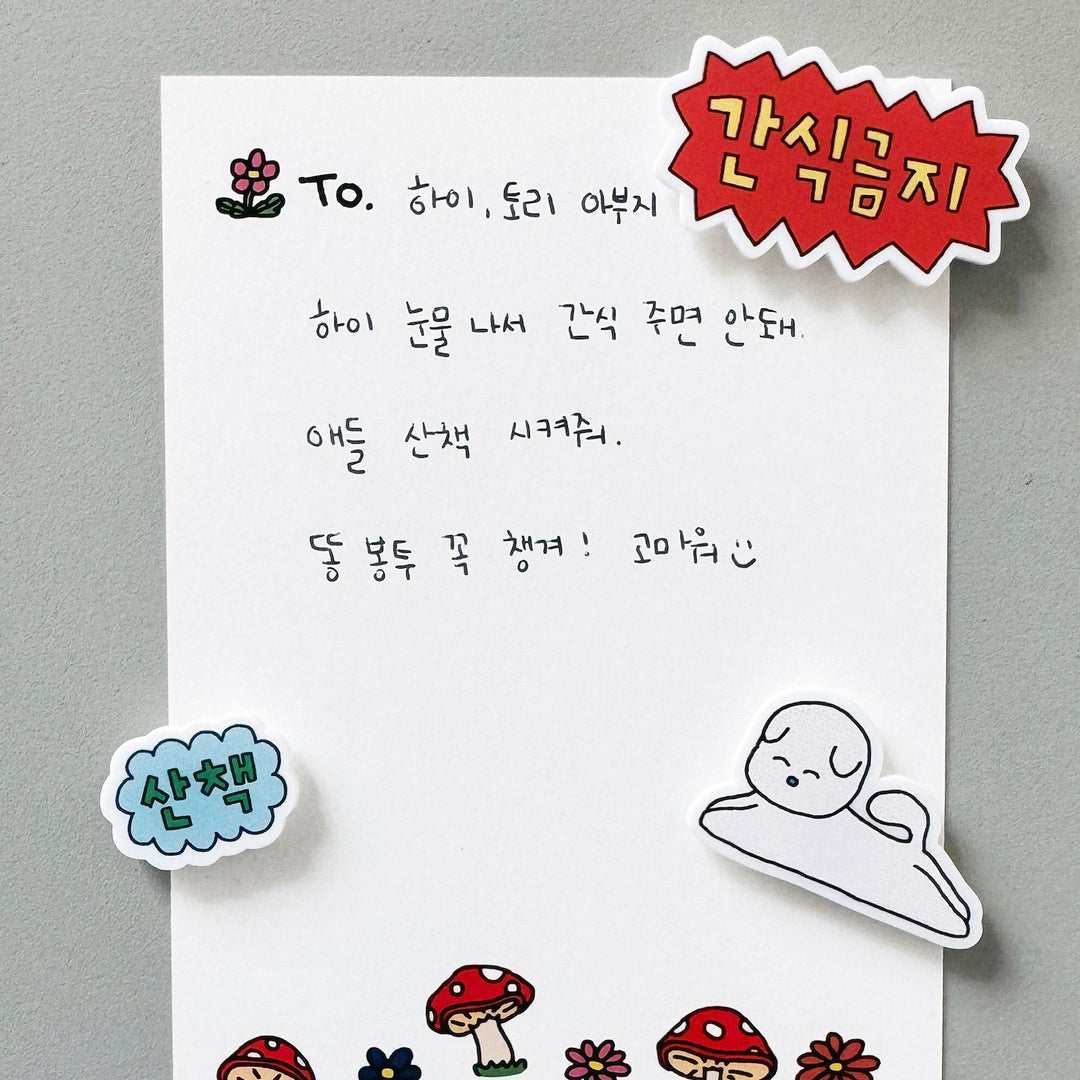 간식금지
To. 하이, 토리 아부지
하이 눈물 나서 간식 주면 안돼.
애들 산책 시켜줘.
똥 봉투 꼭 챙겨! 고마워
산책